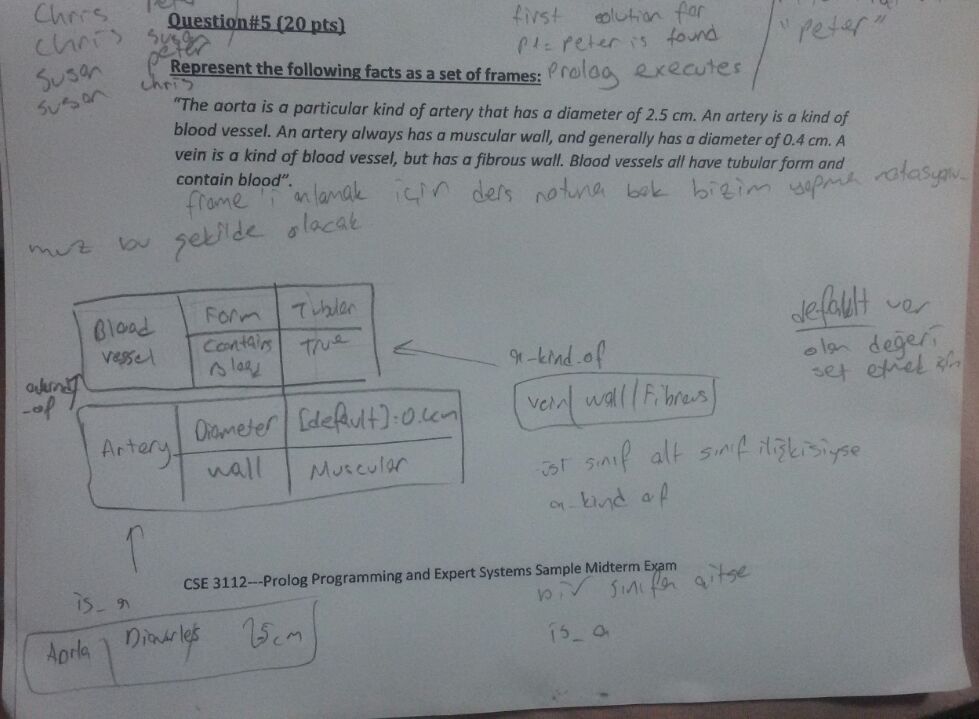 Chris
Chris Susan
Susan peter
Susan chris
Question#5 (20 pts)
first solution for
P1= Peter is found
Prolog executes
"peter"
Represent the following facts as a set of frames:
"The aorta is a particular kind of artery that has a diameter of 2.5 cm. An artery is a kind of
blood vessel. An artery always has a muscular wall, and generally has a diameter of 0.4 cm. A
vein is a kind of blood vessel, but has a fibrous wall. Blood vessels all have tubular form and
contain blood".
frame 'i anlamak için ders notuna bak bizim yapma notasyonu-
muz bu şekilde olacak
Blood vessel
Form Tubular
Contains Blood True
a-kind-of
default var
olan değeri
set etmek için
vein wall Fibrous
Artery
Diameter [default]:0.4cm
wall Muscular
üst sınıf alt sınıf ilişkisiyse
a-kind of
CSE 3112---Prolog Programming and Expert Systems Sample Midterm Exam
bir sınıfa aitse
is_a
is_a
Aorta Diameter 2.5cm